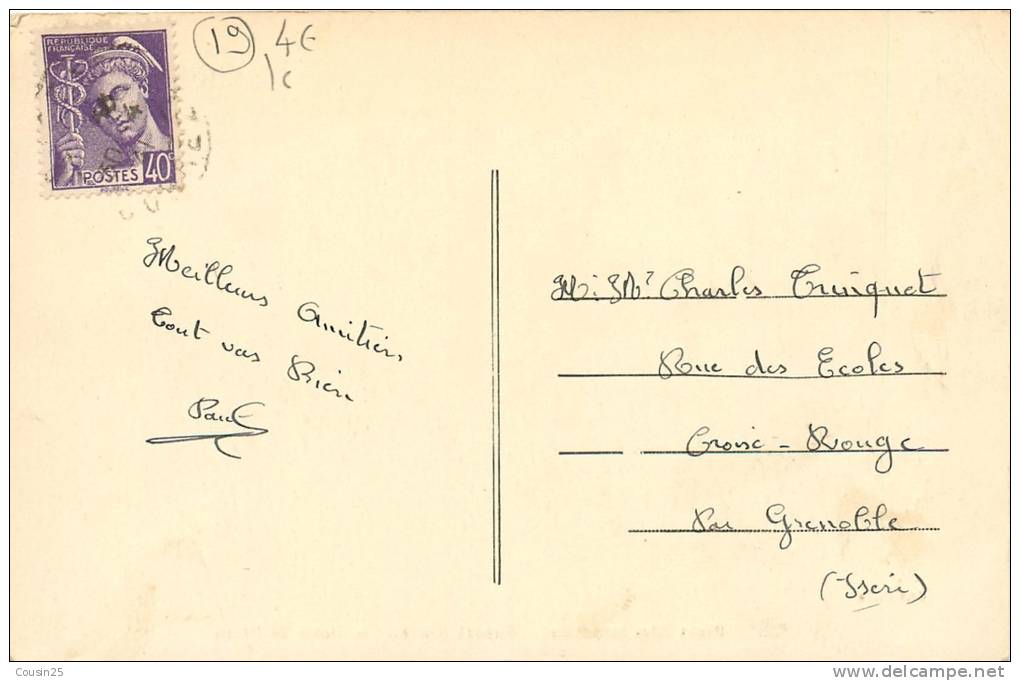 REPUBLIQUE
FRANÇAISE
POSTES 40c
19
4€
1c
Meilleurs Amitiés
Tout vas Bien
Paul
M. Mr Charles Trinquet
Rue des Ecoles
Croix-Rouge
Par Grenoble
(Iseri)
Cousin25
http://www.delcampe.net